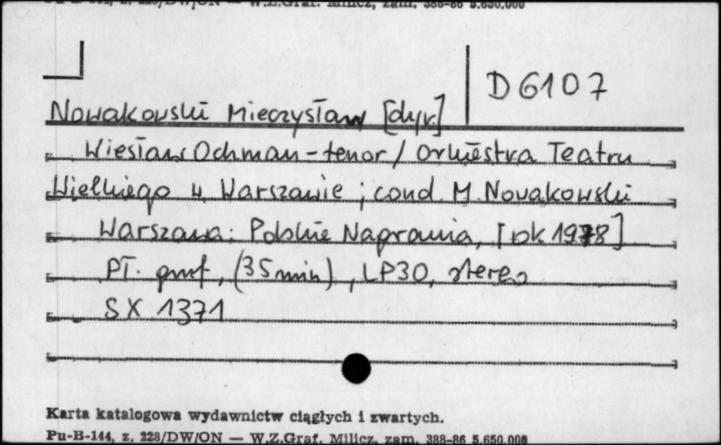 Pu-B-144, z. 228/DW/ON — W.Z.Graf. Milicz, zam. 388-86 5.650.000
D 6107
Nowakowski Mieczysław [dyr.]
Wiesław Ochman - tenor / Orkiestra Teatru
Wielkiego w Warszawie ; cond. M. Nowakowski
Warszawa : Polskie Nagrania, [ok 1978]
Pł. gmf, (35 min), LP30, stereo
SX 1371
Karta katalogowa wydawnictw ciągłych i zwartych.
Pu-B-144, z. 228/DW/ON — W.Z.Graf. Milicz, zam. 388-86 5.650.000